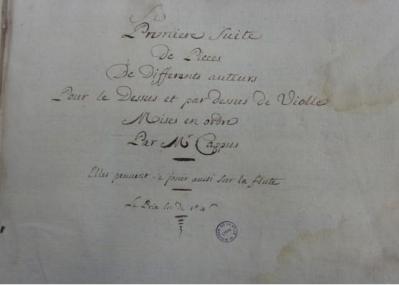 Premiere Suite
De Pieces
De Differents auteurs
Pour le Dessus et par Dessus de Violle
Mises en ordre
Par Mr Cappus
Elles peuvent se jouer aussi sur la flute
Le Prix